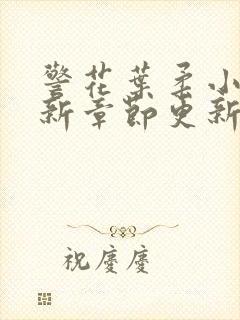 警花葉柔小
新章節更新
祝慶慶